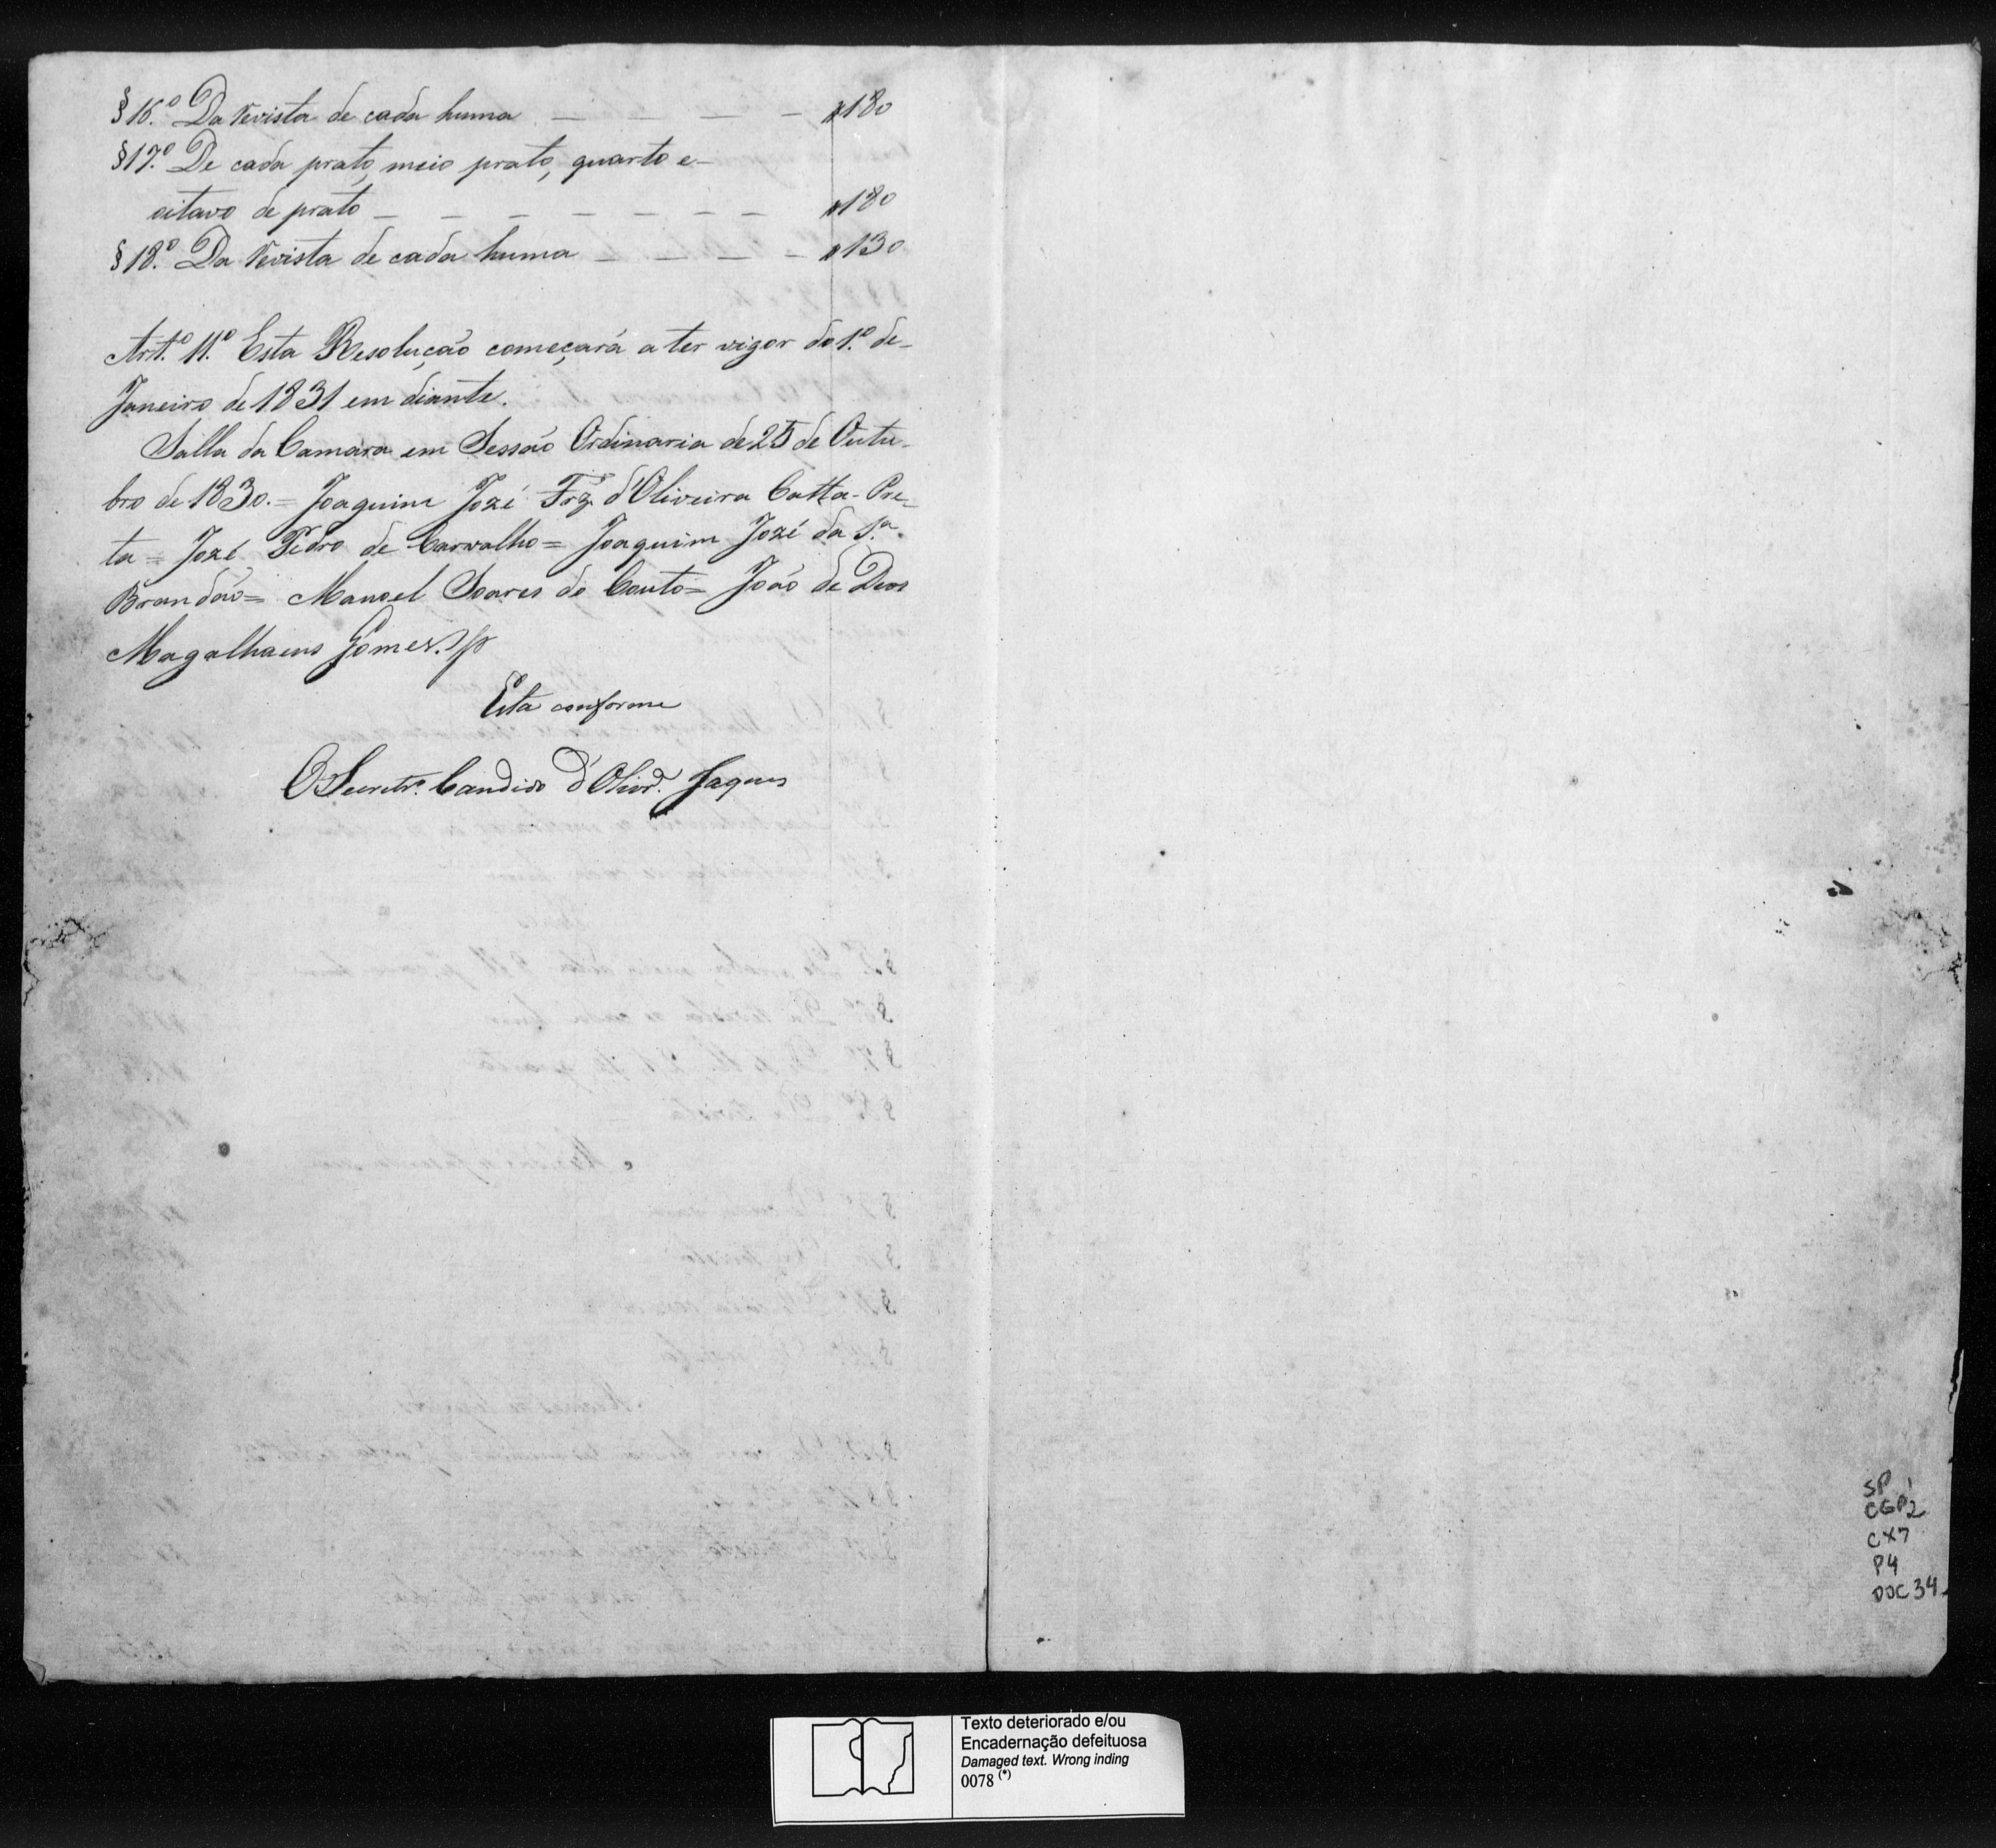 §16.º Da Revista de cada huma — — — — — $180
§17.º De cada prato, meio prato, quarto e-
oitavo de prato — — — — — — — — $180
§18.º Da Revista de cada huma — — — — — $130
Art.º 11.º Esta Resolução começará a ter vigor do 1.º de-
Janeiro de 1831 em diante.
Salla da Camara em Sessão Ordinaria de 25 de Outu-
bro de 1830. = Joaquim Jozé Frz. d'Oliveira Catta-Pre-
ta = Jozé Pedro de Carvalho = Joaquim Jozé da S.ª
Brandão = Manoel Soares do Couto = João de Deos
Magalhaens Gomes.
Está conforme
O Secretr.º Candido d'Olivr.ª Jaques
SP 1
CGP2
CX7
P4
DOC 34
Texto deteriorado e/ou
Encadernação defeituosa
Damaged text. Wrong inding
0078 (*)